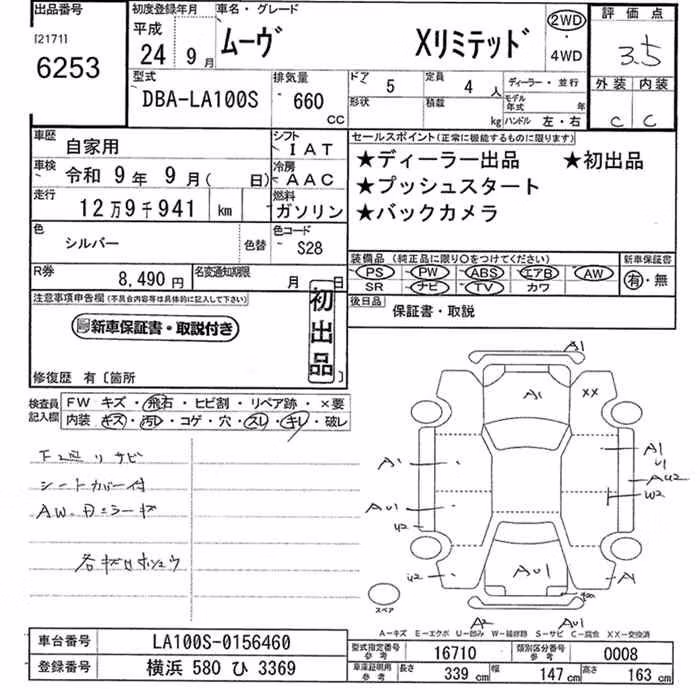 出品番号
[2171]
6253
初度登録年月
平成
24年 9月
車名・グレード
ムーヴ Xリミテッド
2WD
・
4WD
評価点
3.5
外装 内装
C C
型式
DBA-LA100S
排気量
660
CC
ドア 5
形状
定員 4 人
積載 kg
ディーラー・並行
モデル年式 年
ハンドル 左・右
車歴 自家用
車検 令和 9年 9月( 日)
走行 12万9千941 km
色 シルバー 色替
シフト IAT
冷房 AAC
燃料 ガソリン
色コード S28
R券 8,490円
名変通知期限 月 日
セールスポイント(正常に機能するものに限ります)
★ディーラー出品 ★初出品
★プッシュスタート
★バックカメラ
装備品(純正品に限り〇をつけてください)
PS PW ABS エアB AW
SR ナビ TV カワ
新車保証書
有・無
後日品 保証書・取説
注意事項申告欄(不具合内容等は具体的に記入して下さい)
新車保証書・取説付き
初出品
修復歴 有〔箇所 〕
検査員記入欄
FW キズ・飛石・ヒビ割・リペア跡・×要
内装 キズ・汚レ・コゲ・穴・スレ・キレ・破レ
下廻リサビ
シートカバー付
AW、ドミラーキズ
A1
A1
XX
A1
A1
U1
AU2
W2
AU1
U2
U2
AU1
A1
A2
AU1
スペア
A-キズ E-エクボ U-凹み W-補修跡 S-サビ C-腐食 XX-交換済
車台番号 LA100S-0156460
登録番号 横浜 580 ひ 3369
型式指定番号 参考 16710
類別区分番号 参考 0008
車庫証明用 参考 長さ 339 cm 幅 147 cm 高さ 163 cm